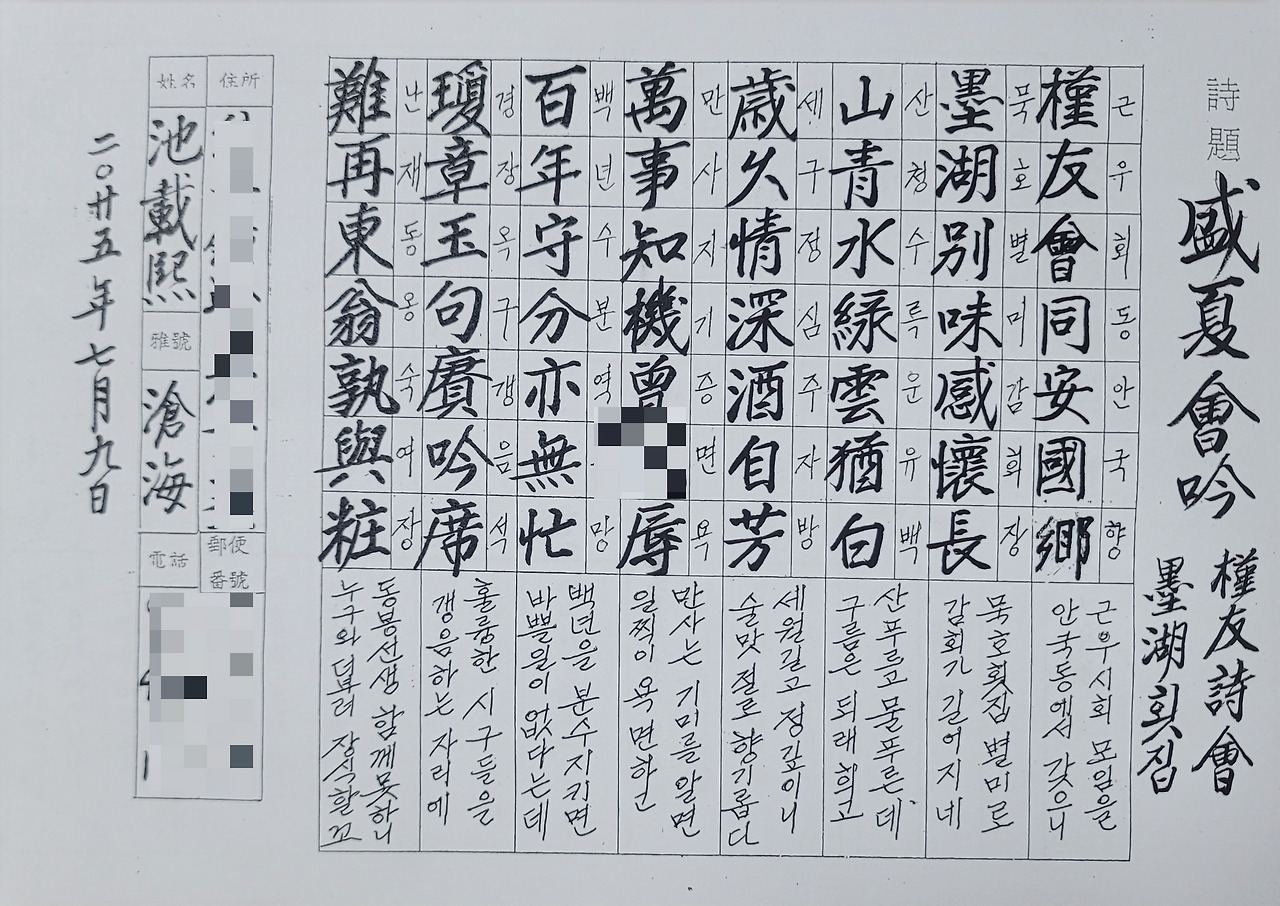 詩題
盛夏會吟
槿友詩會
墨湖횟집
槿友會同安國鄕
근우회동안국향
근우시회 모임을
안국동에서 갖으니
墨湖別味感懷長
묵호별미감회장
묵호횟집 별미로
감회가 길어지네
山青水緑雲猶白
산청수륵운유백
산푸르고 물푸른데
구름은 되래 희고
歲久情深酒自芳
세구정심주자방
세월길고 정깊이니
술맛 절로 향기롭다
萬事知機曾 辱
만사지기증면욕
만사는 기미를 알면
일찍이 욕 면하고
百年守分亦無忙
백년수분역무망
백년을 분수지키면
바쁠일이 없다는데
瓊章玉句賡吟席
경장옥구갱음석
훌륭한 시구들을
갱음하는 자리에
難再東翁孰與粧
난재동옹숙여장
동봉선생 함께못하니
누구와 더부러 장식할꼬
住所
郵便番號
姓名
池載熙
雅號
滄海
電話
二〇廿五年七月九日